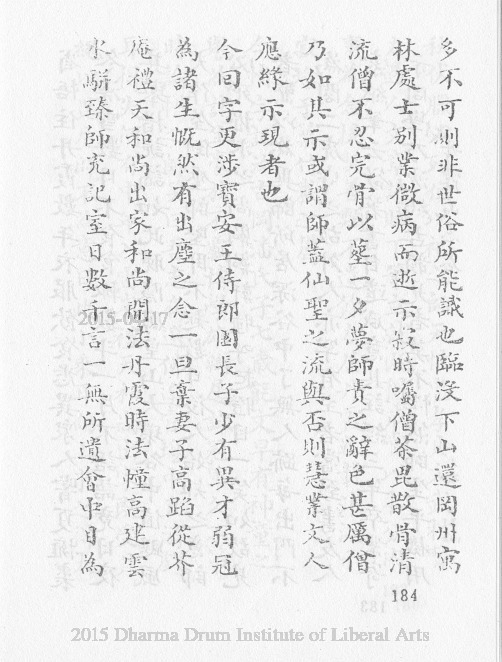 多不可則非世俗所能識也臨沒下山還岡州寓
林處士別業微病而逝示寂時囑僧茶毘散骨清
流僧不忍完骨以塟一夕夢師責之辭色甚厲僧
乃如其示或謂師蓋仙聖之流與否則慧業文人
應緣示現者也
今回字更涉寶安王侍郎園長子少有異才弱冠
為諸生慨然有出塵之念一旦棄妻子高蹈從芥
庵禮天和尚出家和尚開法丹霞時法幢高建雲
水駢臻師充記室日數千言一無所遺會中目為
184
2015 Dharma Drum Institute of Liberal Arts